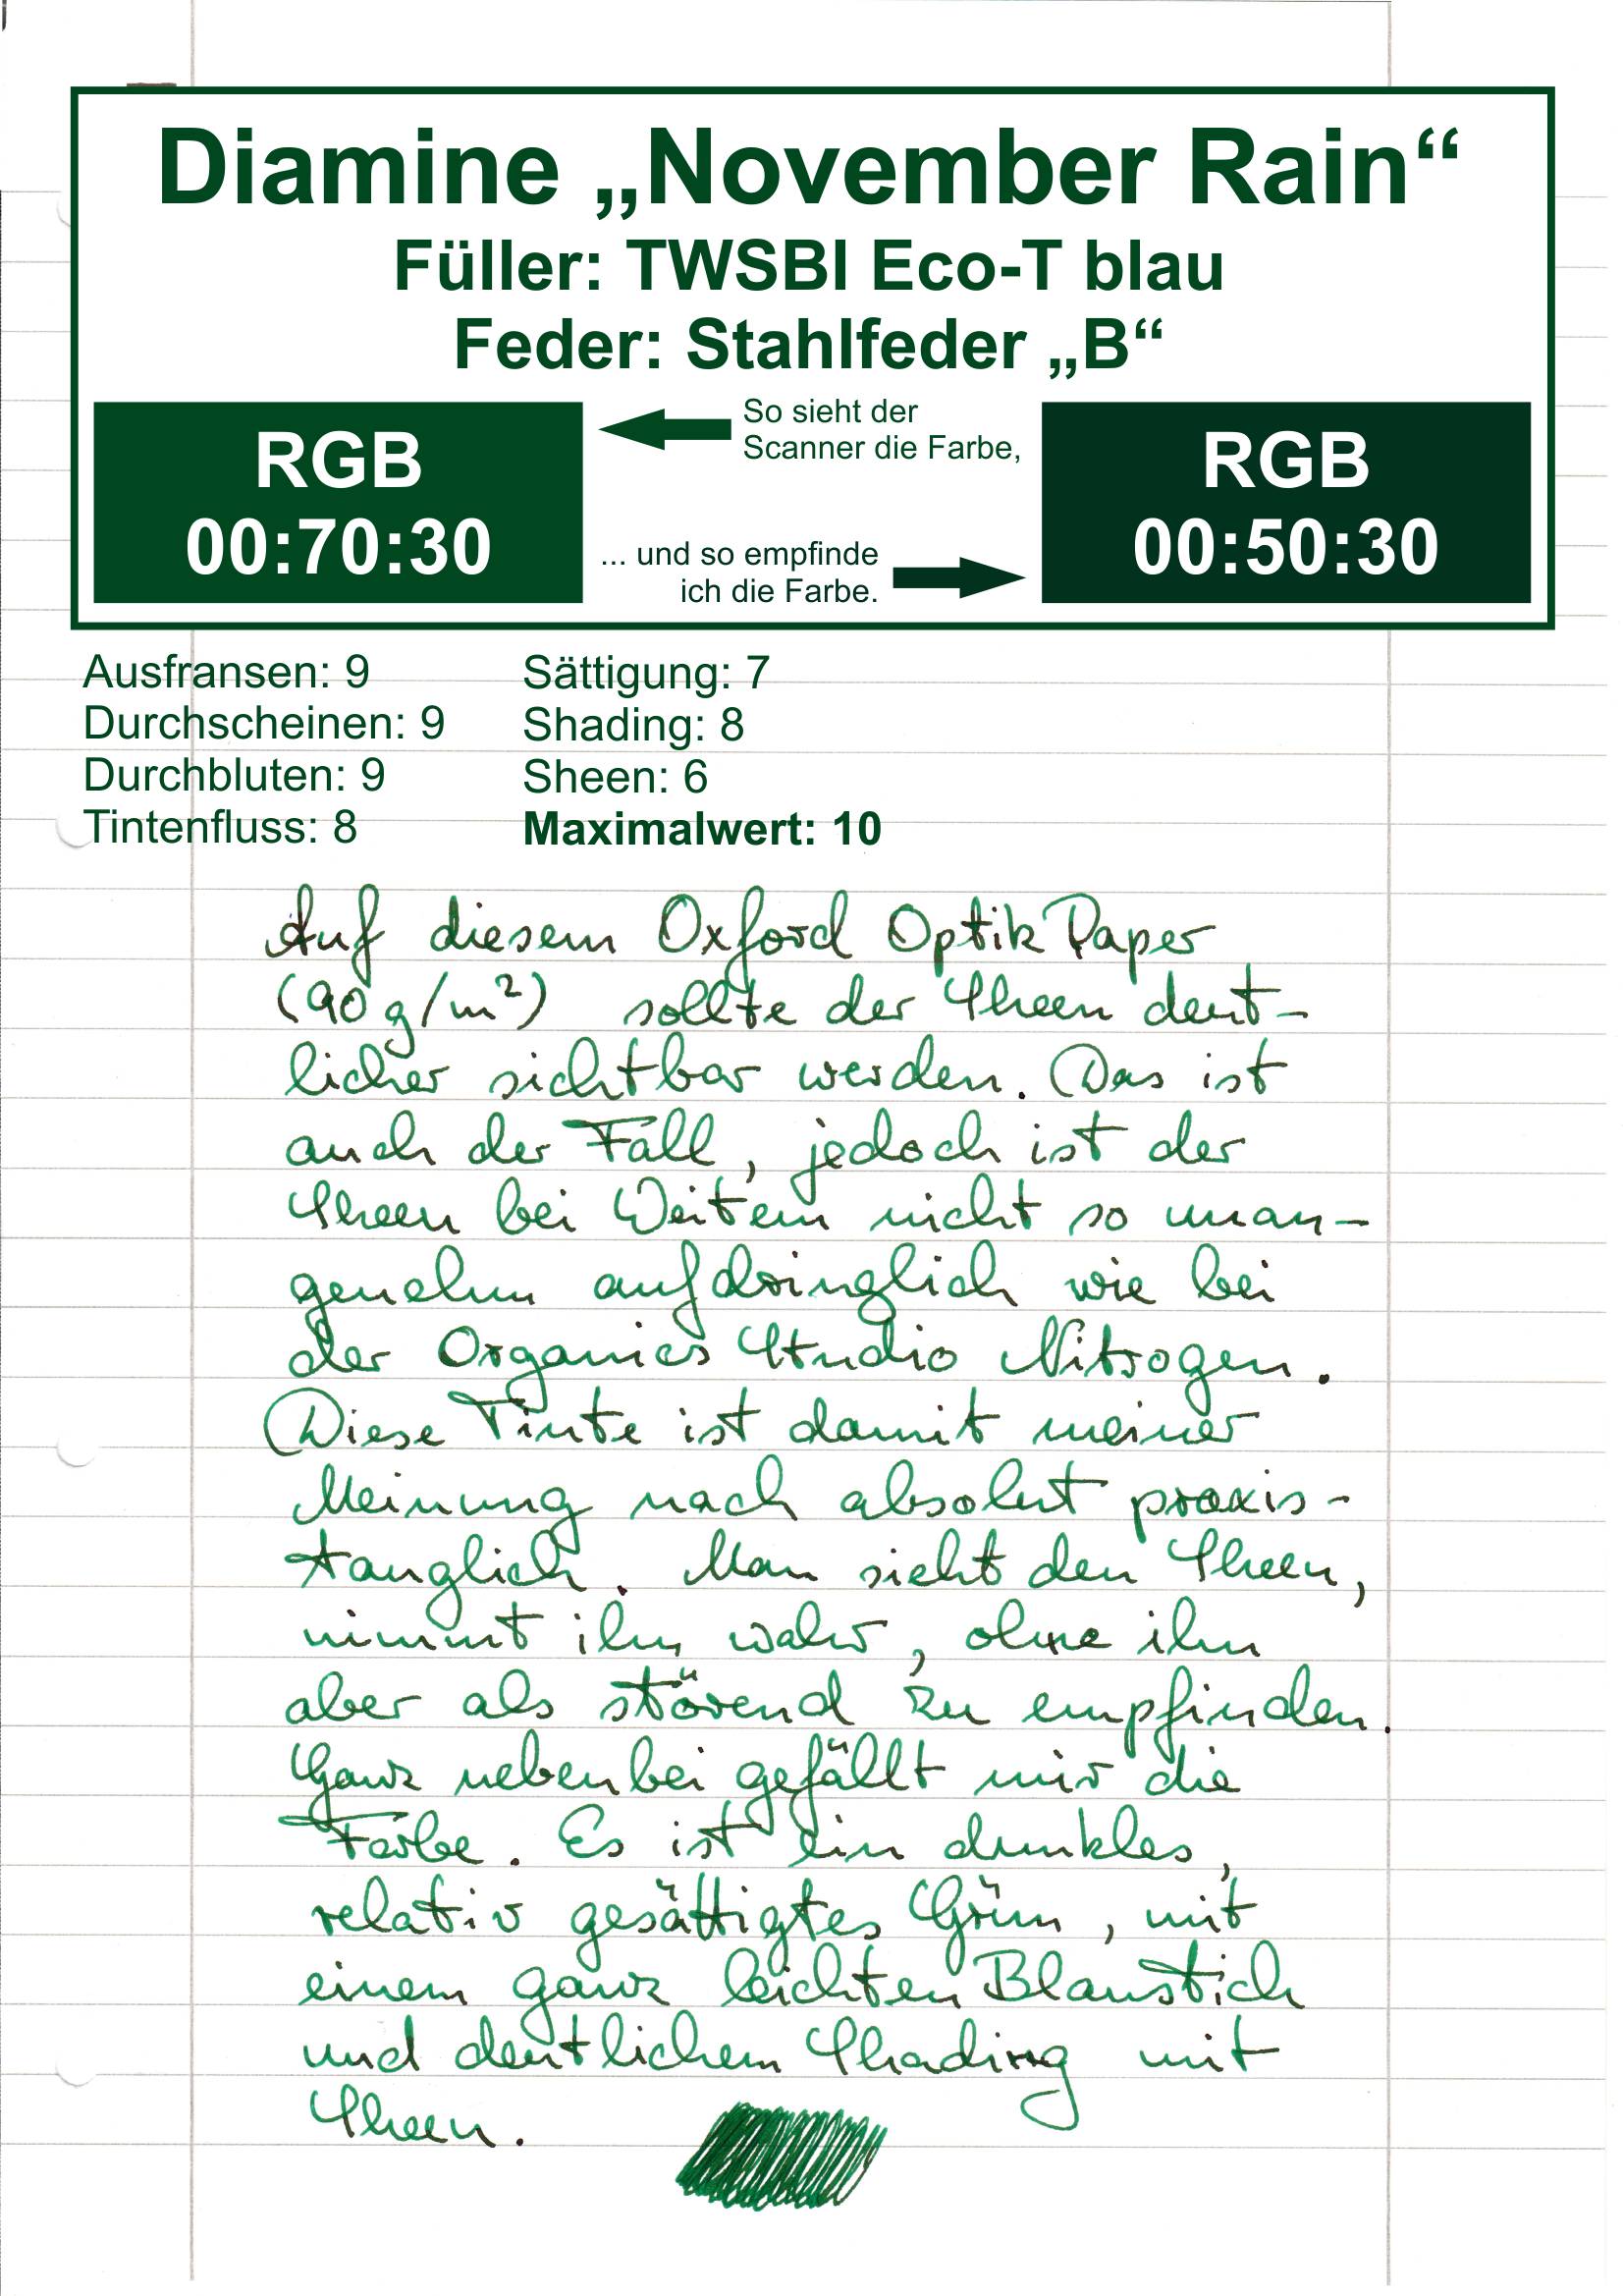 Diamine „November Rain“
Füller: TWSBI Eco-T blau
Feder: Stahlfeder „B“
RGB
00:70:30
So sieht der
Scanner die Farbe,
... und so empfinde
ich die Farbe.
RGB
00:50:30
Ausfransen: 9
Durchscheinen: 9
Durchbluten: 9
Tintenfluss: 8
Sättigung: 7
Shading: 8
Sheen: 6
Maximalwert: 10
Auf diesem Oxford Optik Paper
(90 g/m²) sollte der Sheen deut-
licher sichtbar werden. Das ist
auch der Fall, jedoch ist der
Sheen bei Weitem nicht so unan-
genehm aufdringlich wie bei
der Organics Studio Nitrogen.
Diese Tinte ist damit meiner
Meinung nach absolut praxis-
tauglich. Man sieht den Sheen,
nimmt ihn wahr, ohne ihn
aber als störend zu empfinden.
Ganz nebenbei gefällt mir die
Farbe. Es ist ein dunkles,
relativ gesättigtes Grün, mit
einem ganz leichten Blaustich
und deutlichem Shading mit
Sheen.